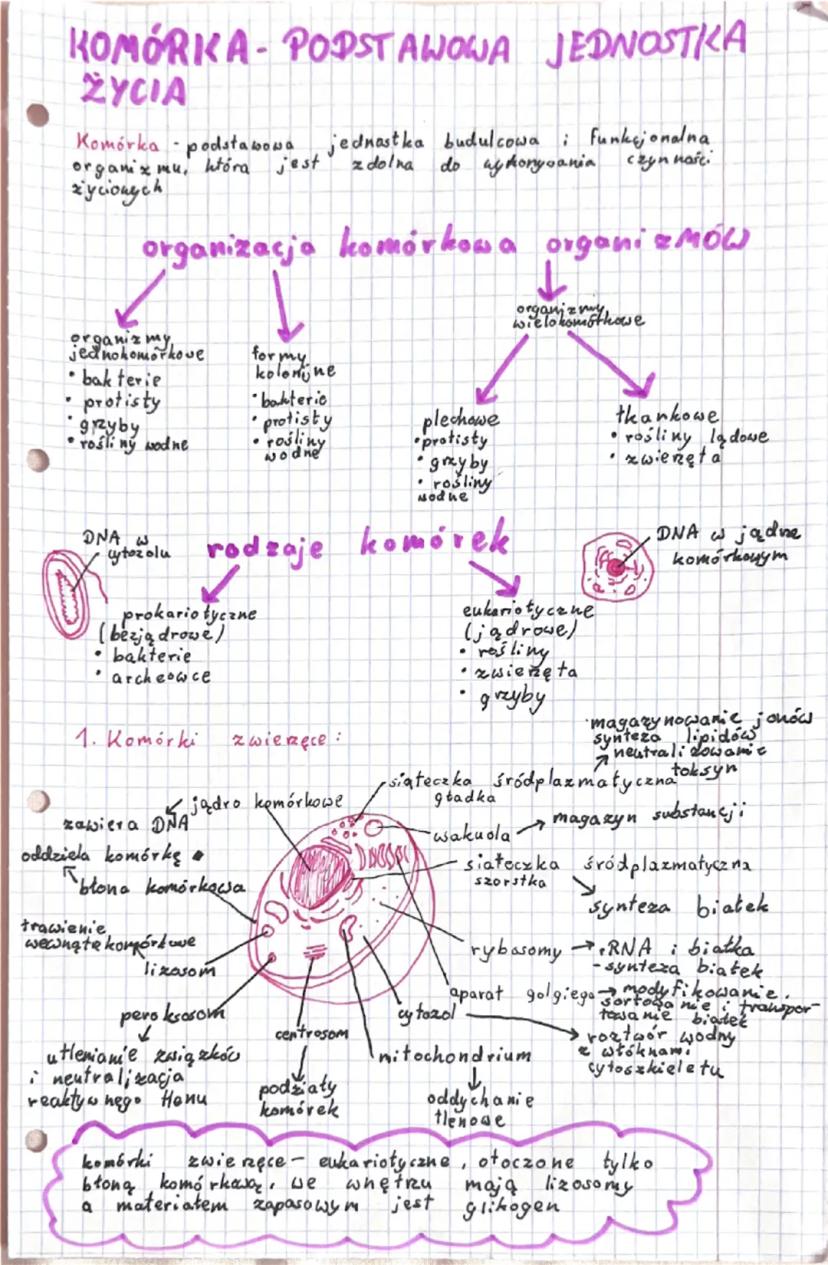 KOMÓRKA - PODSTAWOWA JEDNOSTKA
ŻYCIA
Komórka - podstawowa jednostka budulcowa i funkcjonalna
organizmu, która jest zdolna do wykonywania czynności
życiowych
organizacja komórkowa organizMÓW
organizmy
jednokomórkowe
• bakterie
• protisty
• grzyby
• rośliny wodne
formy
kolonijne
• bakterie
• protisty
• rośliny
wodne
organizmy
wielokomórkowe
plechowe
• protisty
• grzyby
• rośliny
wodne
tkankowe
• rośliny lądowe
• zwierzęta
rodzaje komórek
DNA w
cytozolu
DNA w jądrze
komórkowym
prokariotyczne
(bezjądrowe)
• bakterie
• archeowce
eukariotyczne
(jądrowe)
• rośliny
• zwierzęta
• grzyby
1. Komórki zwierzęce:
magazynowanie jonów
synteza lipidów
neutralizowanie
toksyn
siateczka śródplazmatyczna
gładka
jądro komórkowe
zawiera DNA
wakuola
magazyn substancji
oddziela komórkę
błona komórkowa
siateczka śródplazmatyczna
szorstka
synteza białek
trawienie
wewnątrzkomórkowe
lizosom
rybosomy
rRNA i białka
- synteza białek
aparat golgiego
modyfikowanie,
sortowanie i transpor-
towanie białek
peroksosom
utlenianie związków
i neutralizacja
reaktywnego tlenu
centrosom
podziały
komórek
cytozol
roztwór wodny
z włóknami
cytoszkieletu
mitochondrium
oddychanie
tlenowe
komórki zwierzęce - eukariotyczne, otoczone tylko
błoną komórkową, we wnętrzu mają lizosomy
a materiałem zapasowym jest glikogen